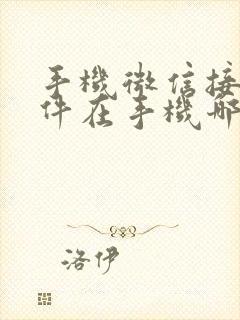 手機微信接
件在手機哪
洛伊